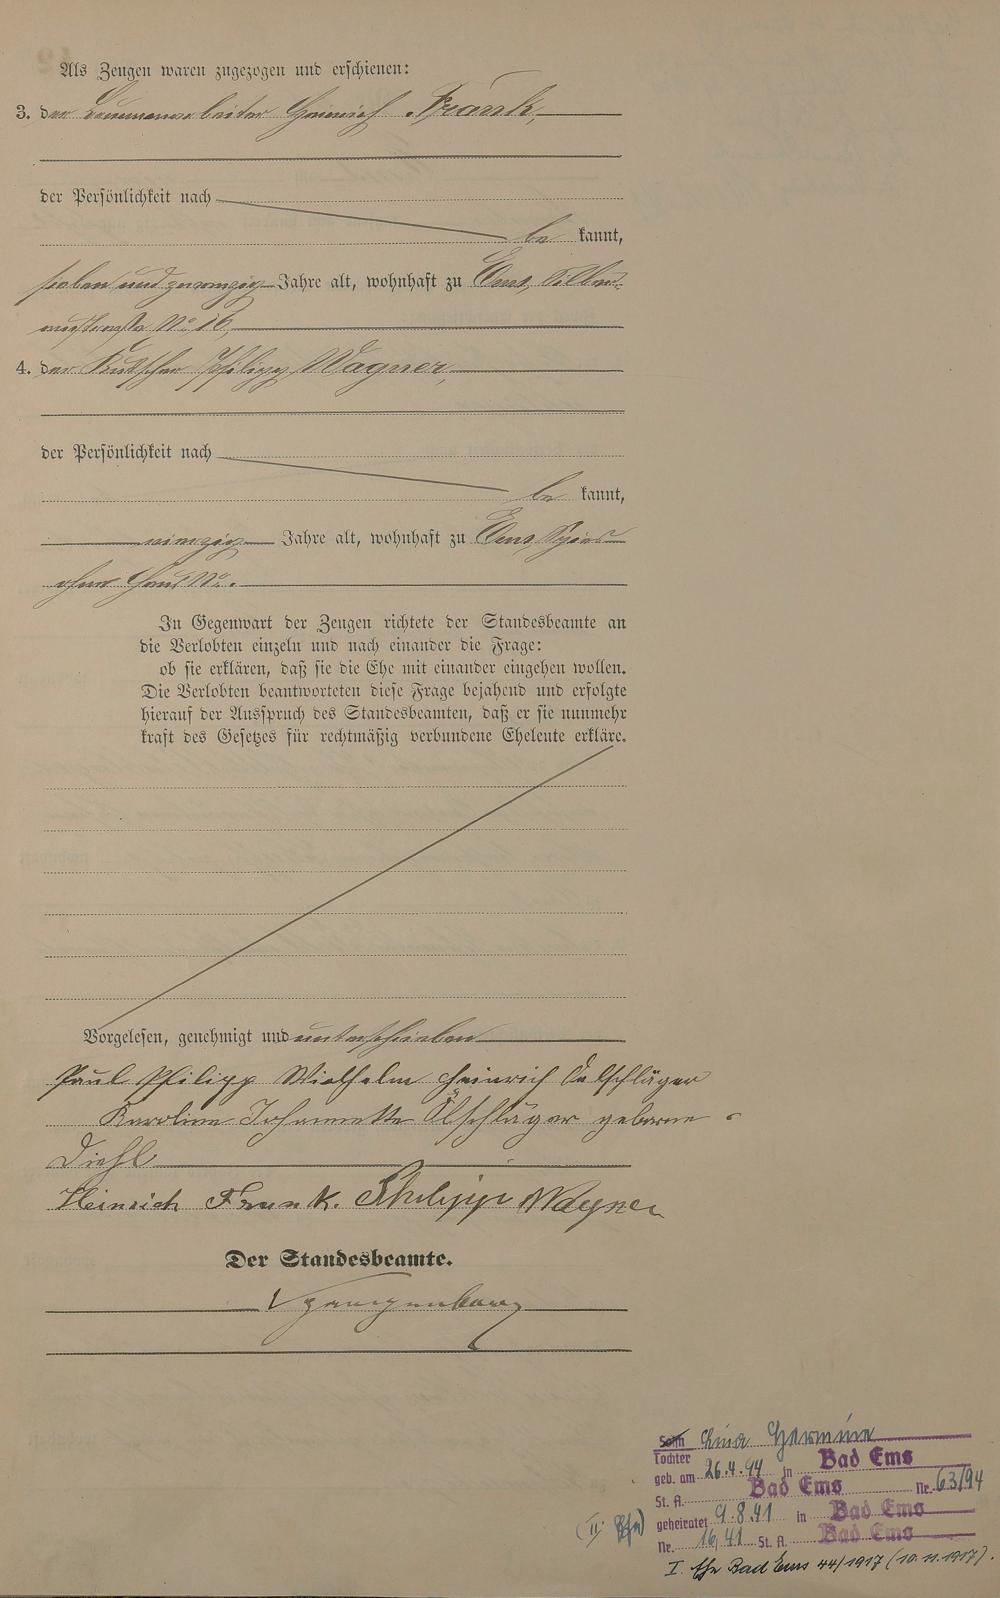 Als Zeugen waren zugezogen und erschienen:
3. der Brunnenarbeiter Heinrich Frank,
der Persönlichkeit nach
be kannt,
sieben und zwanzig Jahre alt, wohnhaft zu Ems, Silber-
austraße No. 16,
4. der Kutscher Philipp Wagner,
der Persönlichkeit nach
be kannt,
vierzig Jahre alt, wohnhaft zu Ems, Spies
ohne Haus No.
In Gegenwart der Zeugen richtete der Standesbeamte an
die Verlobten einzeln und nach einander die Frage:
ob sie erklären, daß sie die Ehe mit einander eingehen wollen.
Die Verlobten beantworteten diese Frage bejahend und erfolgte
hierauf der Ausspruch des Standesbeamten, daß er sie nunmehr
kraft des Gesetzes für rechtmäßig verbundene Eheleute erkläre.
Vorgelesen, genehmigt und unterschrieben
Paul Philipp Wielhelm Heinrich Oelschläger
Karoline Johannette Ölschläger geborne
Diehl
Heinrich Frank. Philipp Wagner
Der Standesbeamte.
Sohn Lina Hermine
Tochter
geb. am 26.4.94 in Bad Ems
St. A. Bad Ems Nr. 63/94
(II. Ehe) geheiratet 9.8.41 in Bad Ems
Nr. 16/41 St. A. Bad Ems
I. Ehe Bad Ems 44/1917 (10.11.1917).